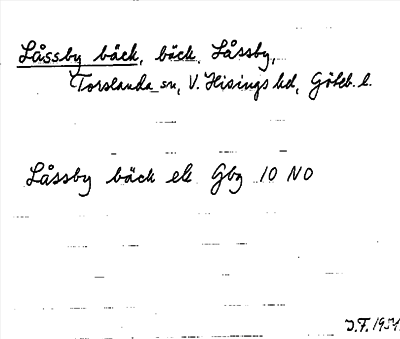 Låssby bäck, bäck, Låssby,
Torslanda sn, V. Hisings hd, Göteb. l.
Låssby bäck ek Gbg 10 NO
J.F. 1951